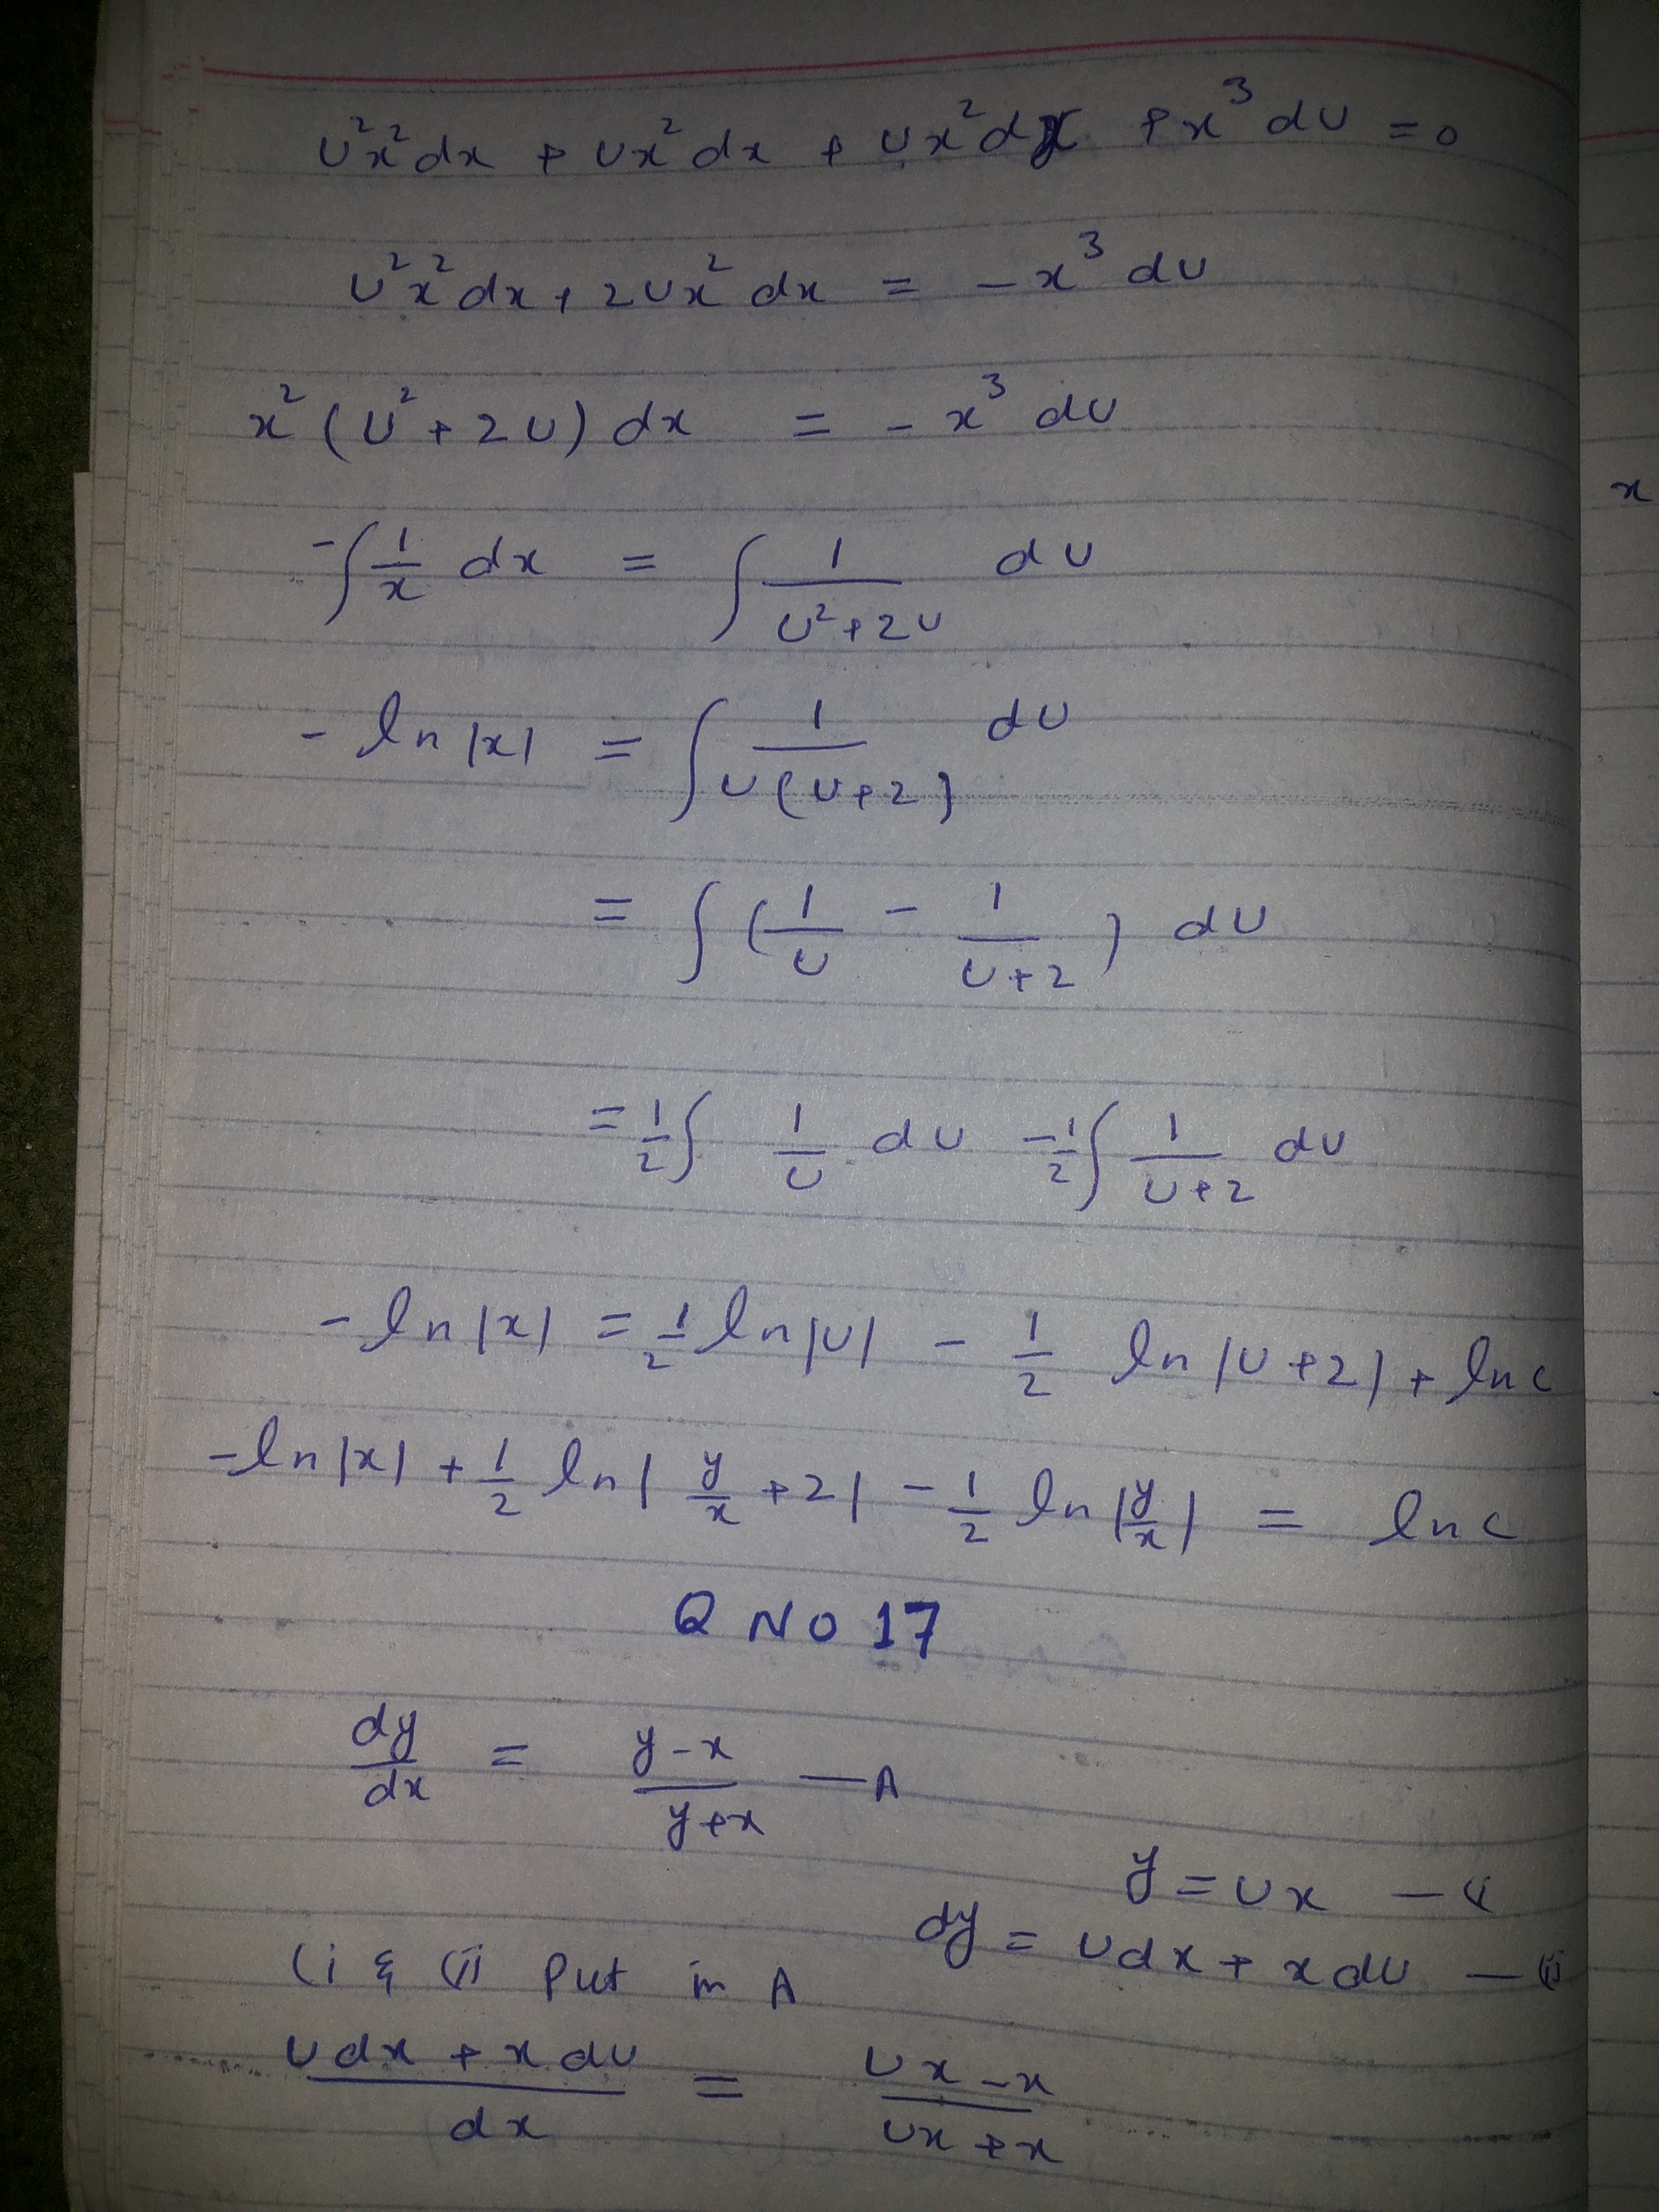 U²x²dx + Ux²dx + Ux²dx + x³dU = 0
U²x²dx + 2Ux²dx = -x³dU
x²(U²+2U)dx = -x³dU
-∫1/x dx = ∫1/(U²+2U) dU
-ln|x| = ∫1/(U(U+2)) dU
= ∫(1/U - 1/(U+2)) dU
= 1/2∫ 1/U dU - 1/2∫ 1/(U+2) dU
-ln|x| = 1/2 ln|U| - 1/2 ln|U+2| + ln c
-ln|x| + 1/2 ln|y/x + 2| - 1/2 ln|y/x| = ln c
Q NO 17
dy/dx = (y-x)/(y+x) — A
y = Ux — (i
dy = Udx + xdU — (ii
(i & (ii Put in A
(Udx + xdU)/dx = (Ux-x)/(Ux+x)
x